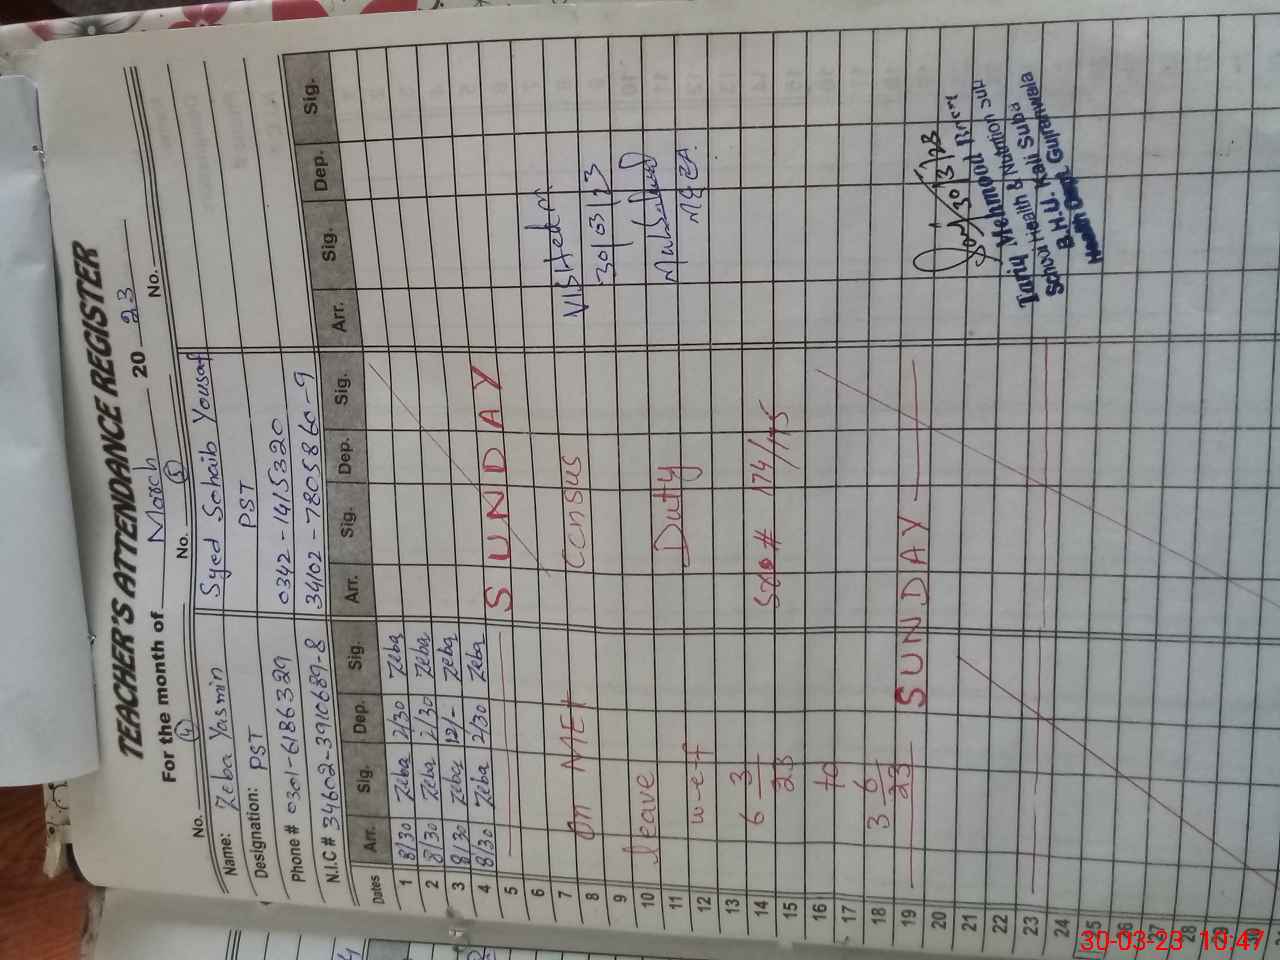 TEACHER'S ATTENDANCE REGISTER
For the month of March 20 23
No. 4 No. 5 No.
Name: Zeba Yasmin Syed Sohaib Yousaf
Designation: PST PST
Phone # 0301-6186329 0342-1415320
N.I.C # 34602-3910689-8 34102-7805860-9
Dates Arr. Sig. Dep. Sig. Arr. Sig. Dep. Sig. Arr. Sig. Dep. Sig.
1 8/30 Zeba 2/30 Zeba
2 8/30 Zeba 2/30 Zeba
3 8/30 Zeba 12/- Zeba
4 8/30 Zeba 2/30 Zeba
5 SUNDAY
6
7 On Census
8 30/03/23
9
10 leave
11 Duty MEA
12 w-e-f
13
14 6 3/23 174/175
15
16 to
17
18 3 6/23
19 SUNDAY
20 30/3/23
21 Tariq Mehmood
22 School Health & Nutrition
23 B.H.U. Kali Suba
24 Health Gujranwala
25
26
27
28
29
30
30-03-23 10:47